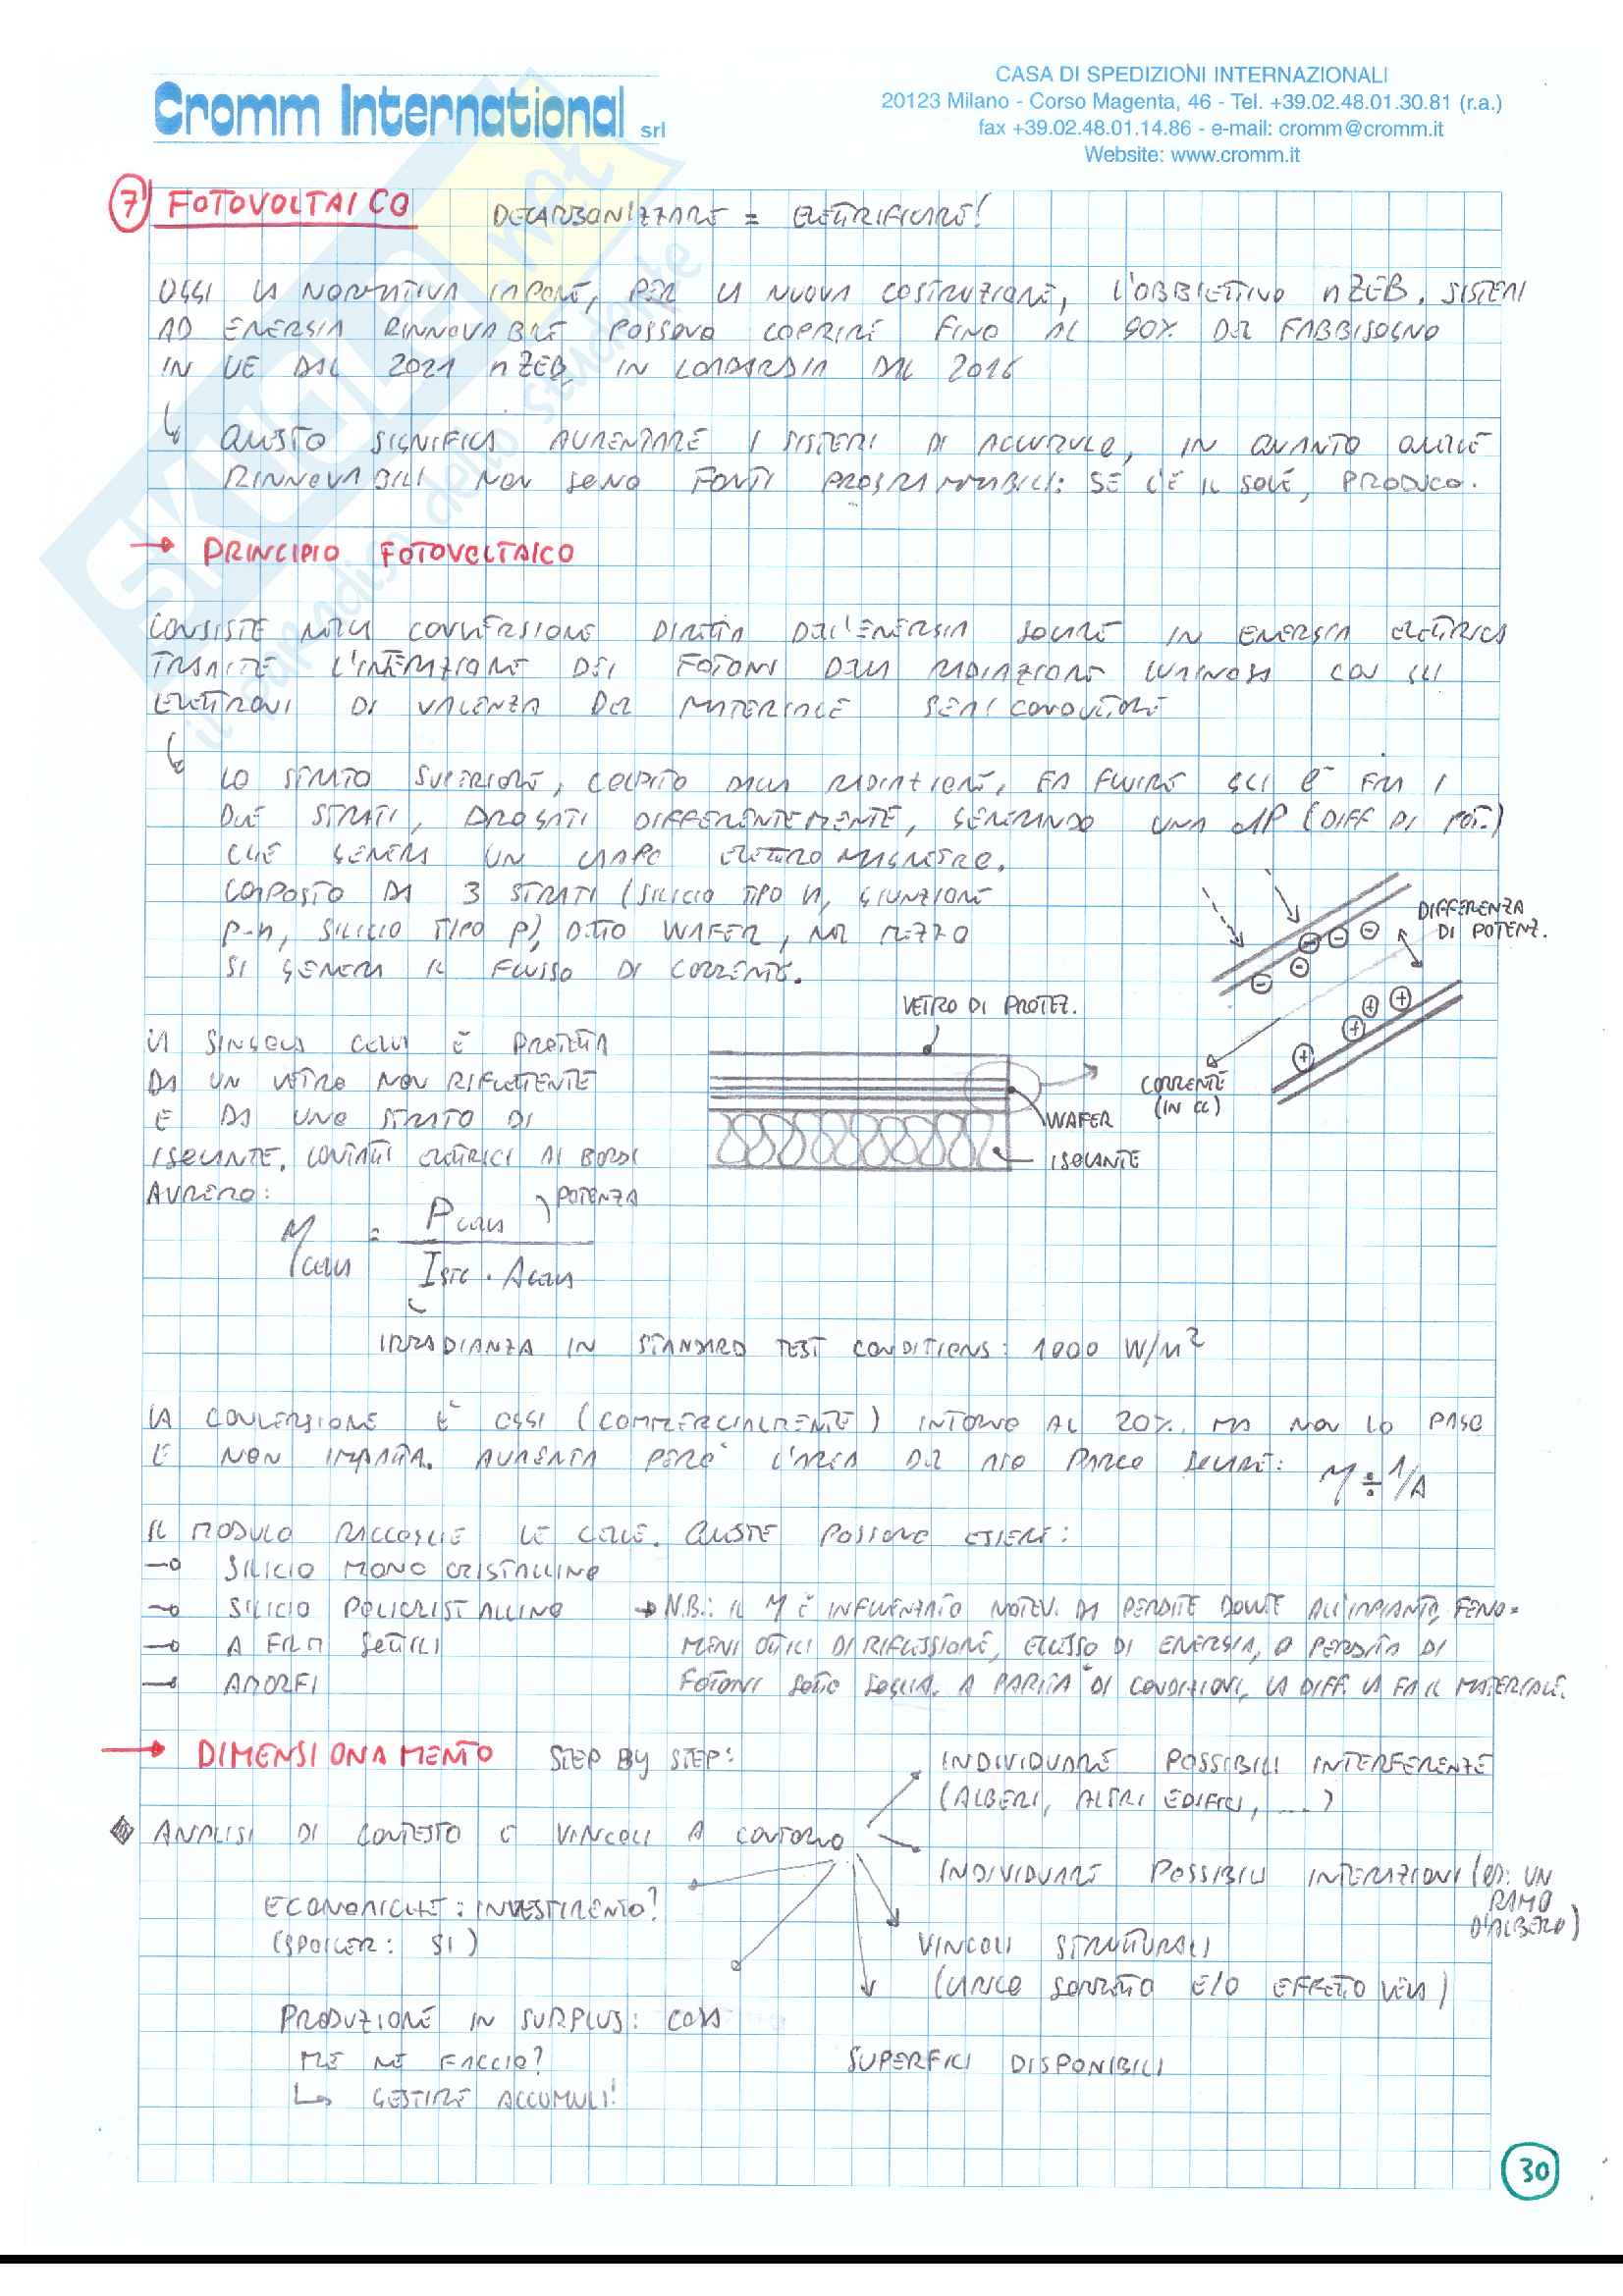 Cromm International srl
CASA DI SPEDIZIONI INTERNAZIONALI
20123 Milano - Corso Magenta, 46 - Tel. +39.02.48.01.30.81 (r.a.)
fax +39.02.48.01.14.86 - e-mail: cromm@cromm.it
Website: www.cromm.it
7 FOTOVOLTAICO DECARBONIZZARE = ELETTRIFICARE!
OGGI LA NORMATIVA IMPONE, PER LA NUOVA COSTRUZIONE, L'OBBIETTIVO nZEB. SISTEMI
AD ENERGIA RINNOVABILE POSSONO COPRIRE FINO AL 90% DEL FABBISOGNO
IN UE DAL 2021 nZEB, IN LOMBARDIA DAL 2016
↳ QUESTO SIGNIFICA AUMENTARE I SISTEMI DI ACCUMULO, IN QUANTO QUELLE
RINNOVABILI NON SONO FONTI PROGRAMMABILI: SE C'È IL SOLE, PRODUCO.
→ PRINCIPIO FOTOVOLTAICO
CONSISTE NELLA CONVERSIONE DIRETTA DELL'ENERGIA SOLARE IN ENERGIA ELETTRICA
TRAMITE L'INTERAZIONE DEI FOTONI DELLA RADIAZIONE LUMINOSA CON GLI
ELETTRONI DI VALENZA DEL MATERIALE SEMICONDUTTORE
↳ LO STRATO SUPERIORE, COLPITO DALLA RADIAZIONE, FA FLUIRE GLI e⁻ FRA I
DUE STRATI, DROGATI DIFFERENTEMENTE, GENERANDO UNA dP (DIFF DI POT.)
CHE GENERA UN CAMPO ELETTROMAGNETICO.
COMPOSTO DA 3 STRATI (SILICIO TIPO N, GIUNZIONE
P-n, SILICIO TIPO P), DETTO WAFER, NEL MEZZO
SI GENERA IL FLUSSO DI CORRENTE.
DIFFERENZA
DI POTENZ.
CORRENTE
(IN CC)
VETRO DI PROTEZ.
WAFER
ISOLANTE
LA SINGOLA CELLA È PROTETTA
DA UN VETRO NON RIFLETTENTE
E DA UNO STRATO DI
ISOLANTE. CONTATTI ELETTRICI AI BORDI
AVREMO:
η cella = P cella / (I STC · A cella)
POTENZA
IRRADIANZA IN STANDARD TEST CONDITIONS: 1000 W/m²
LA CONVERSIONE È OGGI (COMMERCIALMENTE) INTORNO AL 20%. MA NON LO PAGO
E NON IMPATTA. AUMENTA PERÒ L'AREA DEL MIO PARCO SOLARE: η ÷ 1/A
IL MODULO RACCOGLIE LE CELLE. QUESTE POSSONO ESSERE:
—o SILICIO MONOCRISTALLINO
—o SILICIO POLICRISTALLINO
—o A FILM SOTTILI
—o AMORFI
→ N.B.: IL η È INFLUENZATO NOTEV. DA PERDITE DOVUTE ALL'IMPIANTO, FENO=
MENI OTTICI DI RIFLESSIONE, ECCESSO DI ENERGIA, O PERDITA DI
FOTONI SOTTO SOGLIA. A PARITÀ DI CONDIZIONI, LA DIFF. LA FA IL MATERIALE.
→ DIMENSIONAMENTO STEP BY STEP:
ANALISI DI CONTESTO E VINCOLI A CONTORNO
INDIVIDUARE POSSIBILI INTERFERENZE
(ALBERI, ALTRI EDIFICI, ....)
INDIVIDUARE POSSIBILI INTERAZIONI (ES: UN
RAMO
D'ALBERO)
VINCOLI STRUTTURALI
(CARICO SORRETTO E/O EFFETTO VELA)
SUPERFICI DISPONIBILI
ECONOMICHE: INVESTIMENTO?
(SPOILER: SI)
PRODUZIONE IN SURPLUS: COSA
ME NE FACCIO?
↳ GESTIRE ACCUMULI!
30
SKUOLA.net
il paradiso dello studente